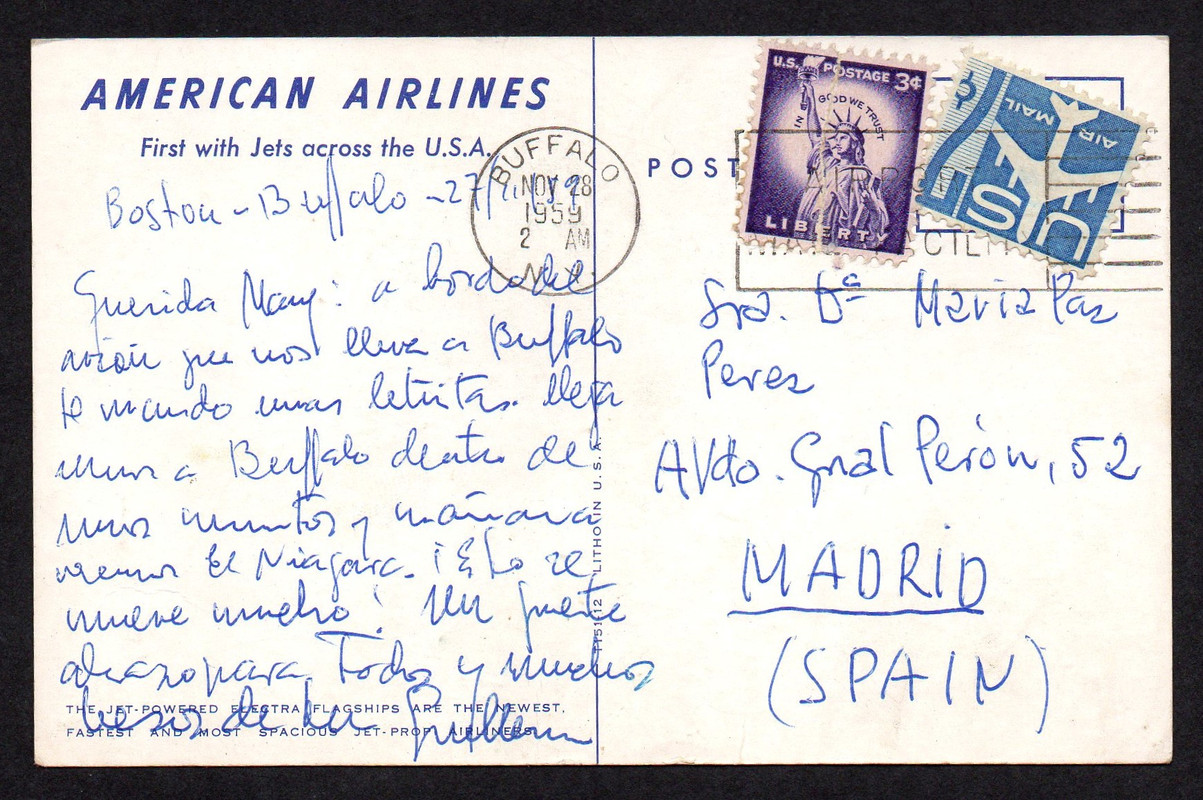 AMERICAN AIRLINES
First with Jets across the U.S.A.
Boston - Buffalo - 27/
Querida Mary: a bordo del
avión que nos lleva a Buffalo
te mando unas letritas. Llega
remos a Buffalo dentro de
unos minutos y mañana
veremos El Niagara. ¡Esto se
mueve mucho! Un fuerte
abrazo para Todos y muchos
besos de tu Guillermo
THE JET-POWERED ELECTRA FLAGSHIPS ARE THE NEWEST,
FASTEST AND MOST SPACIOUS JET-PROP AIRLINERS
LITHO IN U.S.A.
BUFFALO
NOV 28
1959
2 AM
N.Y.
POST
U.S. POSTAGE 3¢
IN GOD WE TRUST
LIBERTY
¢
AIR MAIL
US
AIRPO
MAI CILIT
Sra. Dª Maria Paz
Perez
Avda. Gral Perón, 52
MADRID
(SPAIN)